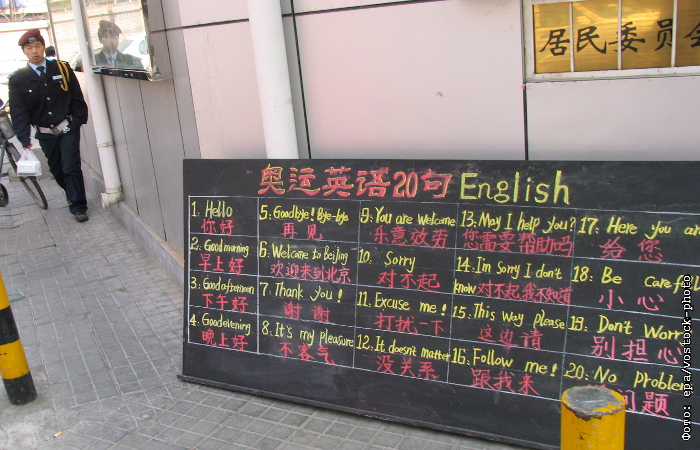 居民委员会
奥运英语20句 English
1. Hello
你好
2. Good morning
早上好
3: Good afternoon
下午好
4. Good evening
晚上好
5: Goodbye! Bye-bye
再见
6. Welcome to Beijing
欢迎来到北京
7. Thank you!
谢谢
8. It's my pleasure
不客气
9: You are welcome
乐意效劳
10. Sorry
对不起
11. Excuse me!
打扰一下
12. It doesn't matter
没关系
13: May I help you?
您需要帮助吗
14. I'm Sorry I don't
know 对不起我不知道
15. This Way Please
这边请
16. Follow me!
跟我来
17: Here you are
给您
18: Be careful
小心
19. Don't Worry
别担心
20: No Problem
问题
Фото: epa/vostock-photo